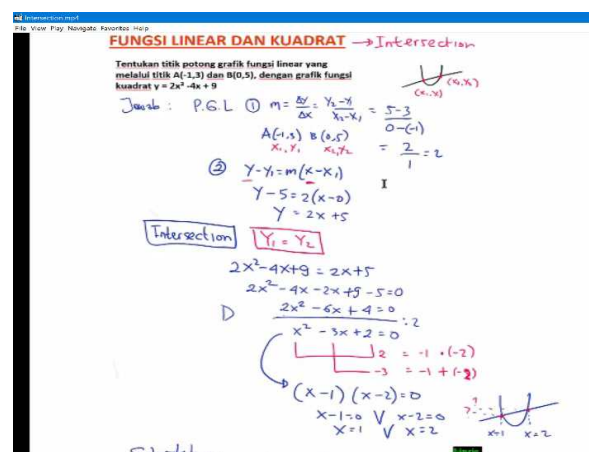 Intersection.mp4
File View Play Navigate Favorites Help
FUNGSI LINEAR DAN KUADRAT → Intersection
Tentukan titik potong grafik fungsi linear yang
melalui titik A(-1,3) dan B(0,5), dengan grafik fungsi
kuadrat y = 2x² -4x + 9
(x₂,y₂)
(x₁,y₁)
Jawab : P.G.L ① m = Δy/Δx = Y₂-Y₁/X₂-X₁ = 5-3/0-(-1)
A(-1,3) B(0,5) = 2/1 = 2
X₁,Y₁ X₂,Y₂
② Y-Y₁=m(X-X₁)
Y-5=2(x-0)
Y = 2x+5
Intersection Y₁ = Y₂
2x²-4x+9 = 2x+5
2x²-4x-2x+9-5=0
2x²-6x+4=0 :2
x²-3x+2=0
2 = -1 · (-2)
-3 = -1 + (-2)
(x-1) (x-2)=0
x-1=0 V x-2=0
x=1 V x=2
x=1 x=2